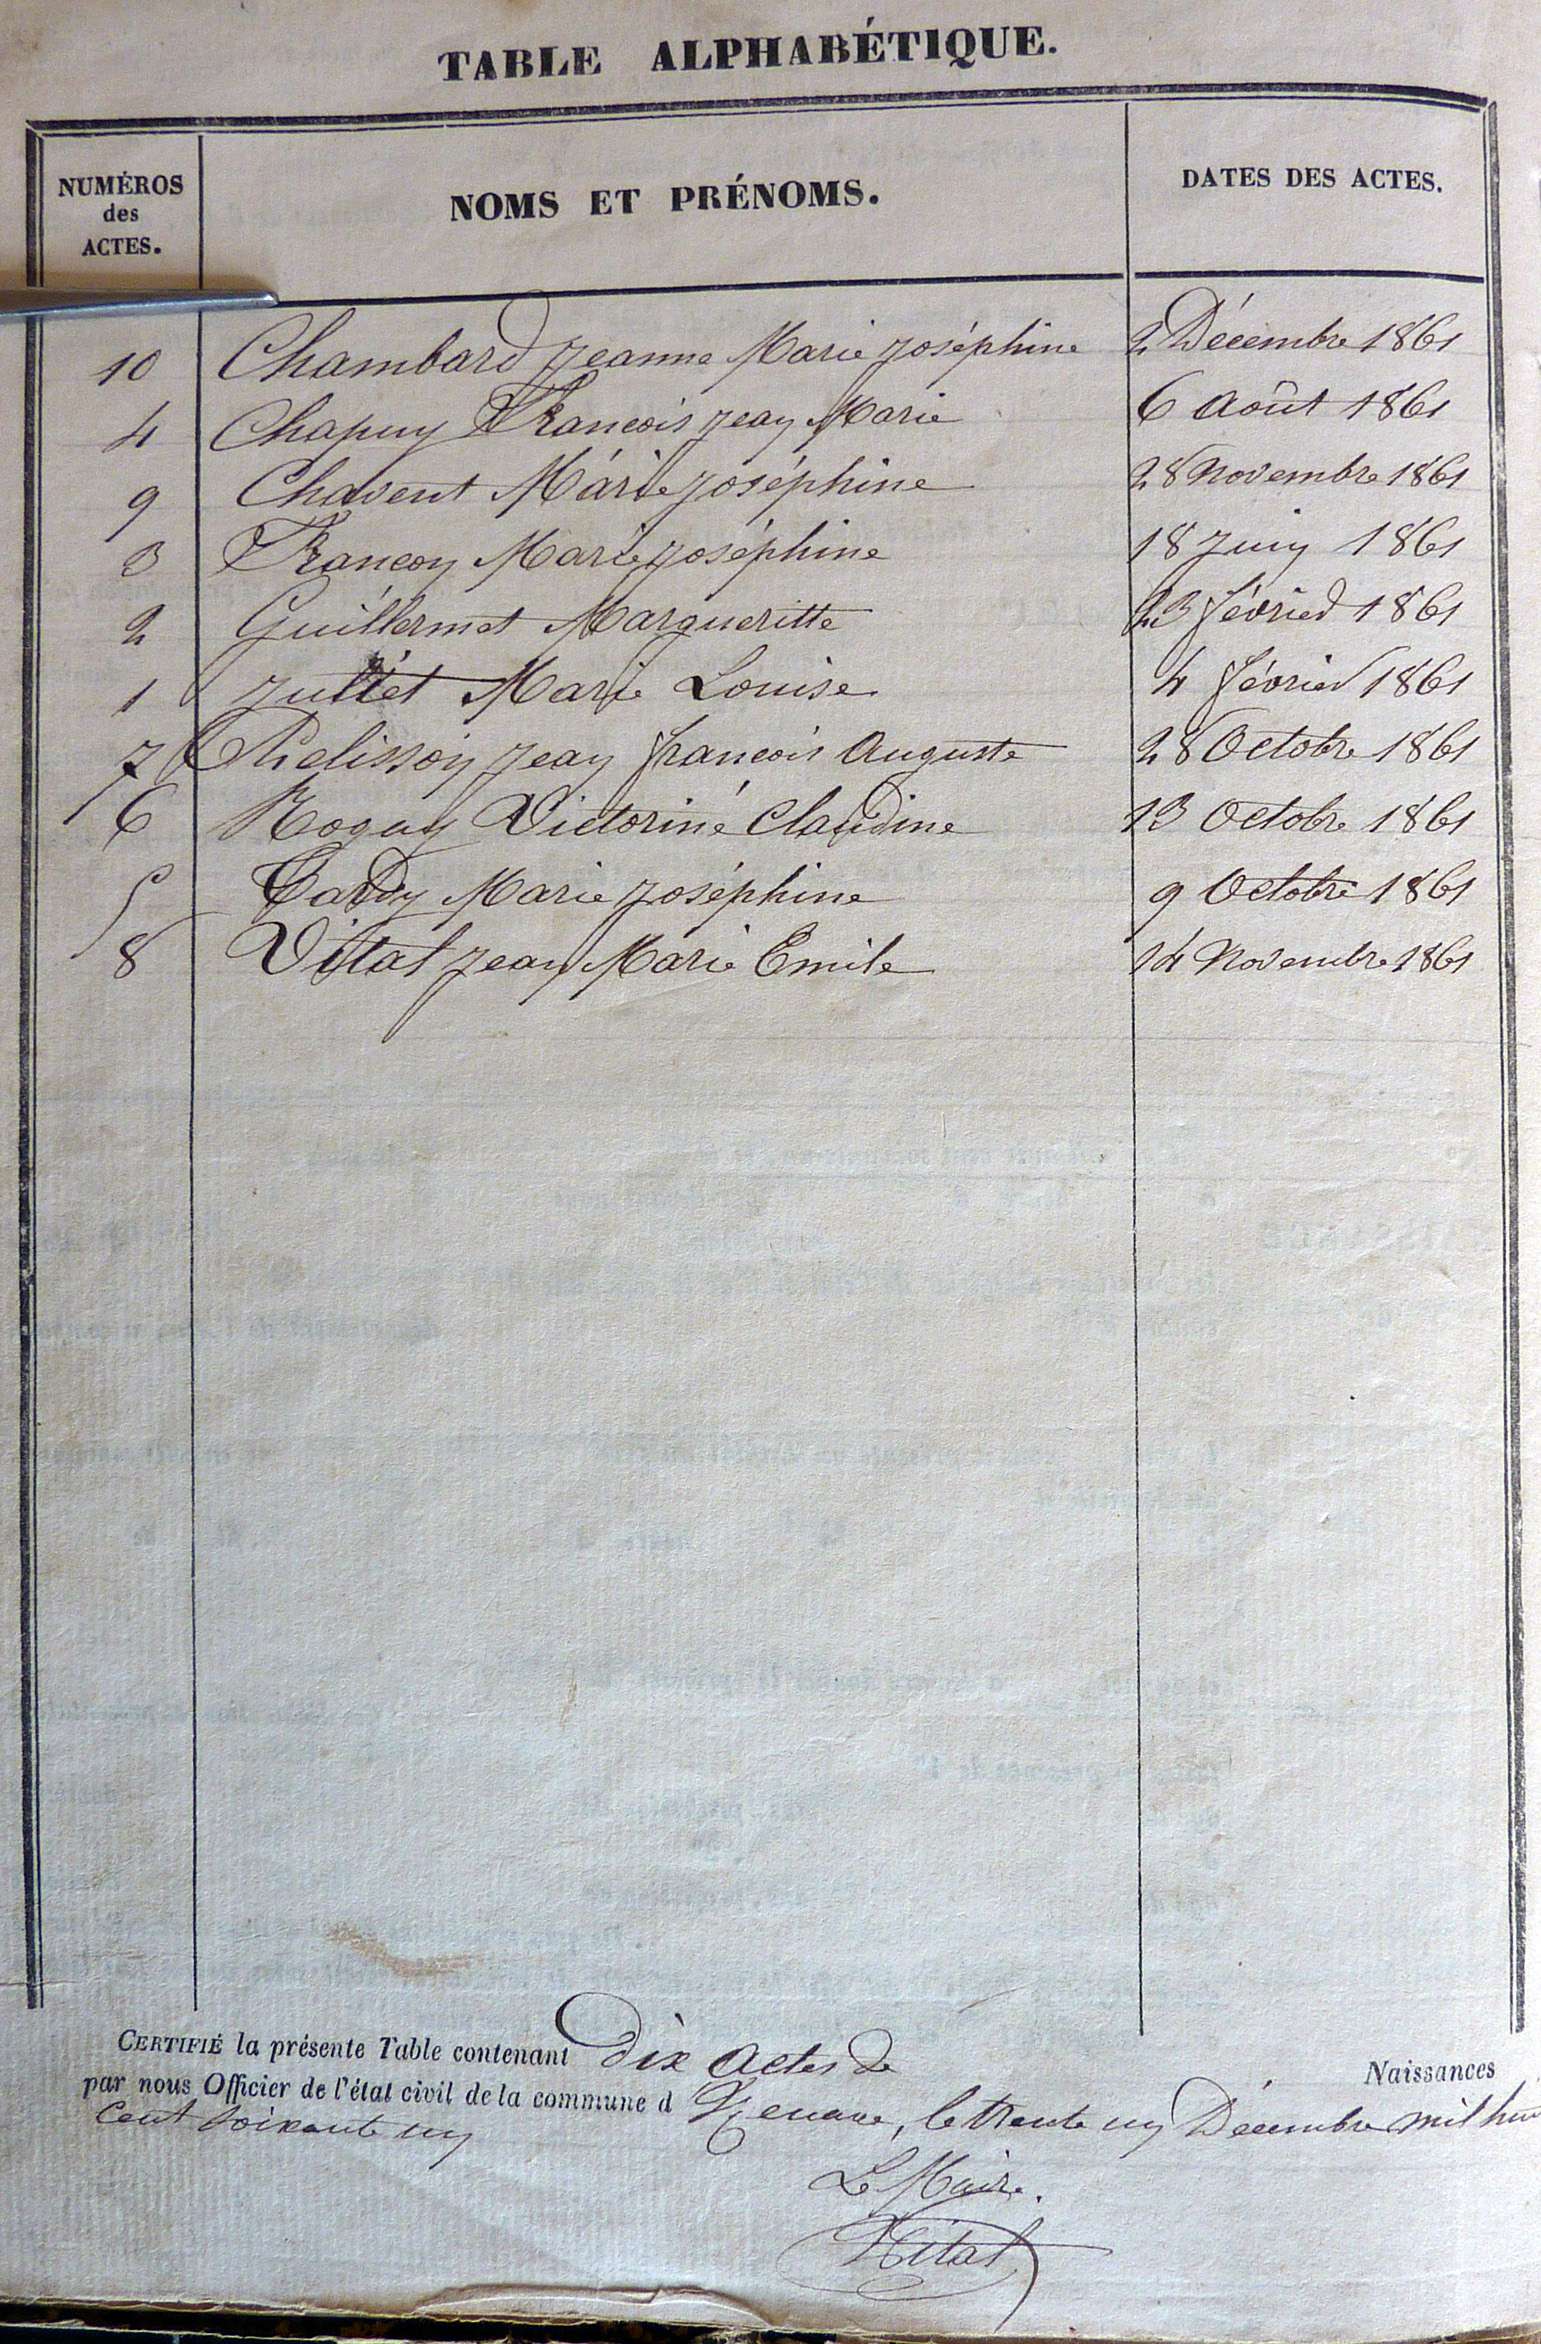 TABLE ALPHABÉTIQUE.
NUMÉROS des ACTES. NOMS ET PRÉNOMS. DATES DES ACTES.
10 Chambard Jeanne Marie Joséphine 2 Décembre 1861
4 Chapuy François Jean Marie 6 Août 1861
9 Chavent Marie Joséphine 28 Novembre 1861
3 Françon Marie Joséphine 18 Juin 1861
2 Guillermet Margueritte 23 février 1861
1 Jullet Marie Louise 4 février 1861
7 Pelisson Jean françois Auguste 28 Octobre 1861
6 Victorine Claudine 13 Octobre 1861
5 Tardy Marie Joséphine 9 Octobre 1861
8 Vital Jean Marie Emile 14 Novembre 1861
CERTIFIÉ la présente Table contenant Dix Actes de Naissances
par nous Officier de l'état civil de la commune d , le trente un Décembre mil huit
Cent soixante un
Le Maire.
Vital